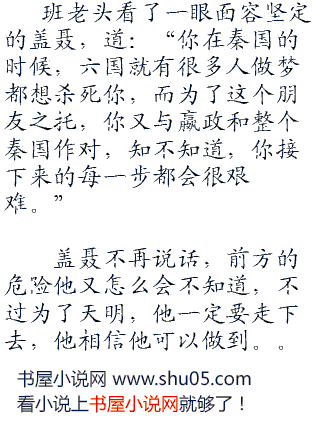 班老头看了一眼面容坚定
的盖聂，道：“你在秦国的
时候，六国就有很多人做梦
都想杀死你，而为了这个朋
友之托，你又与嬴政和整个
秦国作对，知不知道，你接
下来的每一步都会很艰
难。”
盖聂不再说话，前方的
危险他又怎么会不知道，不
过为了天明，他一定要走下
去，他相信他可以做到。。
书屋小说网 www.shu05.com
看小说上书屋小说网就够了！